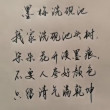 墨梅洗砚池
我家洗砚池头树
朵朵花开淡墨痕
不要人夸好颜色
只留清气满乾坤